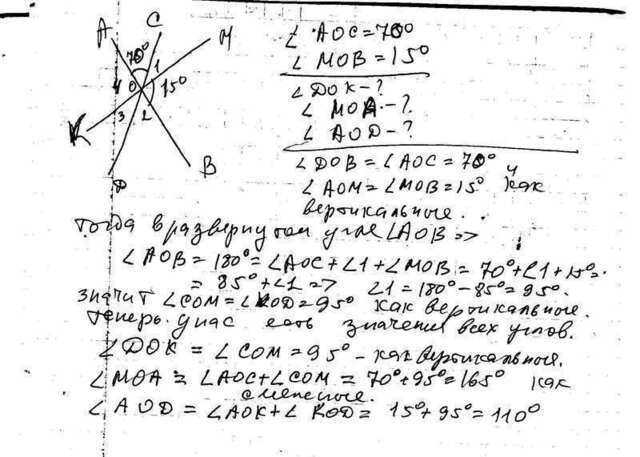 A C M
70° 1
4 O 15°
K 3 2
D B
∠ AOC = 70°
∠ MOB = 15°
∠ DOK - ?
∠ MOA - ?
∠ AOD - ?
∠ DOB = ∠ AOC = 70° и
∠ AOM = ∠ MOB = 15° как
вертикальные.
Тогда в развернутом угле ∠ AOB =>
∠ AOB = 180° = ∠AOC + ∠1 + ∠MOB = 70° + ∠1 + 15° =
= 85° + ∠1 => ∠1 = 180° - 85° = 95°.
значит ∠COM = ∠KOD = 95° как вертикальные.
теперь у нас есть значения всех углов.
∠ DOK = ∠ COM = 95° - как вертикальные.
∠ MOA = ∠AOC + ∠COM = 70° + 95° = 165° как
смежные.
∠ AOD = ∠AOK + ∠ KOD = 15° + 95° = 110°